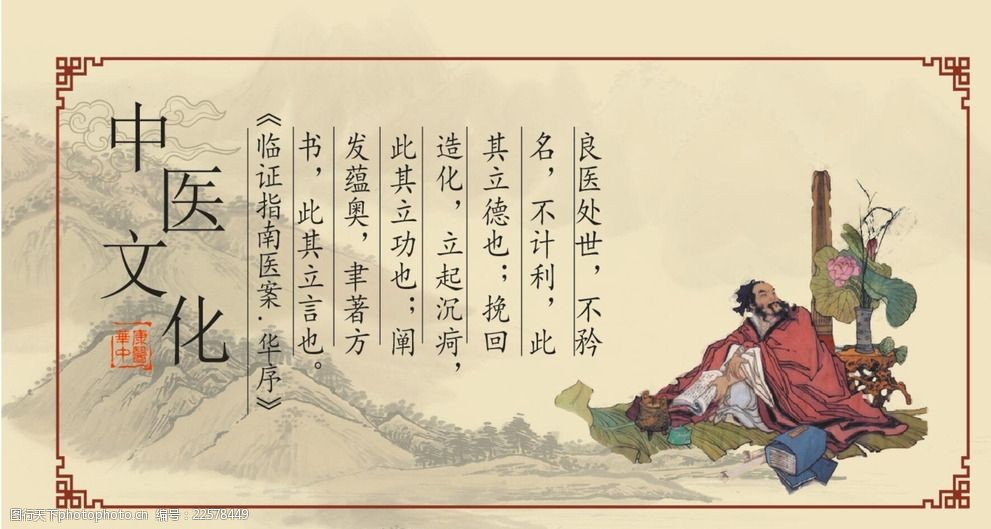 良医处世，不矜
名，不计利，此
其立德也；挽回
造化，立起沉疴，
此其立功也；阐
发蕴奥，聿著方
书，此其立言也。
《临证指南医案·华序》
中医文化
康醫
華中
图行天下photophoto.cn 编号：22578449